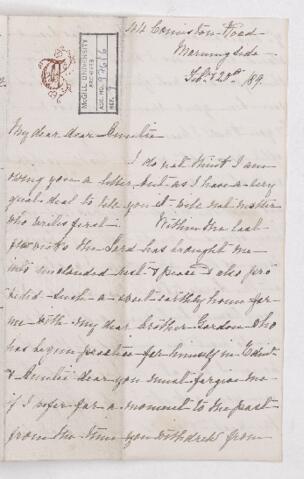 44 Comiston Road
Morningside
Feby 20th 189.
McGILL UNIVERSITY
ARCHIVES
ACC. NO.
REF.
My dear dear Amelia
I do not think I am
owing you a letter, but as I have a very
great deal to tell you it will not matter
who writes first. Within the last
few weeks the Lord has brought me
into unclouded rest & peace & also pro
vided such a sweet earthly home for
me with my dear brother Gordon who
has begun practice for himself in Edinr
& Amelia dear you must forgive me
if I refer for a moment to the past
from the time you withdrew from